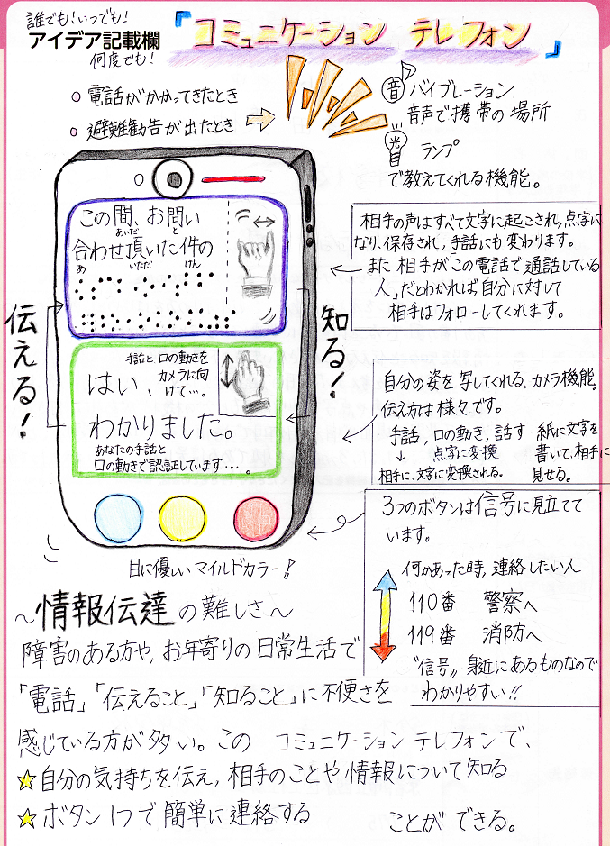 誰でも!いつでも!
アイデア記載欄
何度でも!
『コミュニケーション テレフォン』
○電話がかかってきたとき
○避難勧告が出たとき
音 バイブレーション
音声で携帯の場所
光 ランプ
で教えてくれる機能。
この間、お問い
あいだ と
合わせ頂いた件の
あ いただ けん
伝える!
知る!
手話と、口の動きを
カメラに向
けて…。
はい!
わかりました。
あなたの手話と
口の動きで認証しています…。
相手の声はすべて文字に起こされ,点字に
なり、保存され,手話にも変わります。
また 相手が「この電話で通話している
人」だとわかれば自分に対して
相手はフォローしてくれます。
自分の姿を写してくれる、カメラ機能。
伝え方は様々です。
手話,口の動き,話す
↓ 点字に変換
相手に、文字に変換される。
紙に文字を
書いて,相手に
見せる。
3つのボタンは信号に見立てて
います。
何かあった時,連絡したい人
110番 警察へ
119番 消防へ
"信号"身近にあるものなので
わかりやすい!!
目に優しいマイルドカラー!
~情報伝達の難しさ~
障害のある方や,お年寄りの日常生活で
「電話」「伝えること」「知ること」に不便さを
感じている方が多い。この コミュニケーション テレフォンで、
☆自分の気持ちを伝え,相手のことや情報について知る
☆ボタン1つで簡単に連絡する
ことが できる。